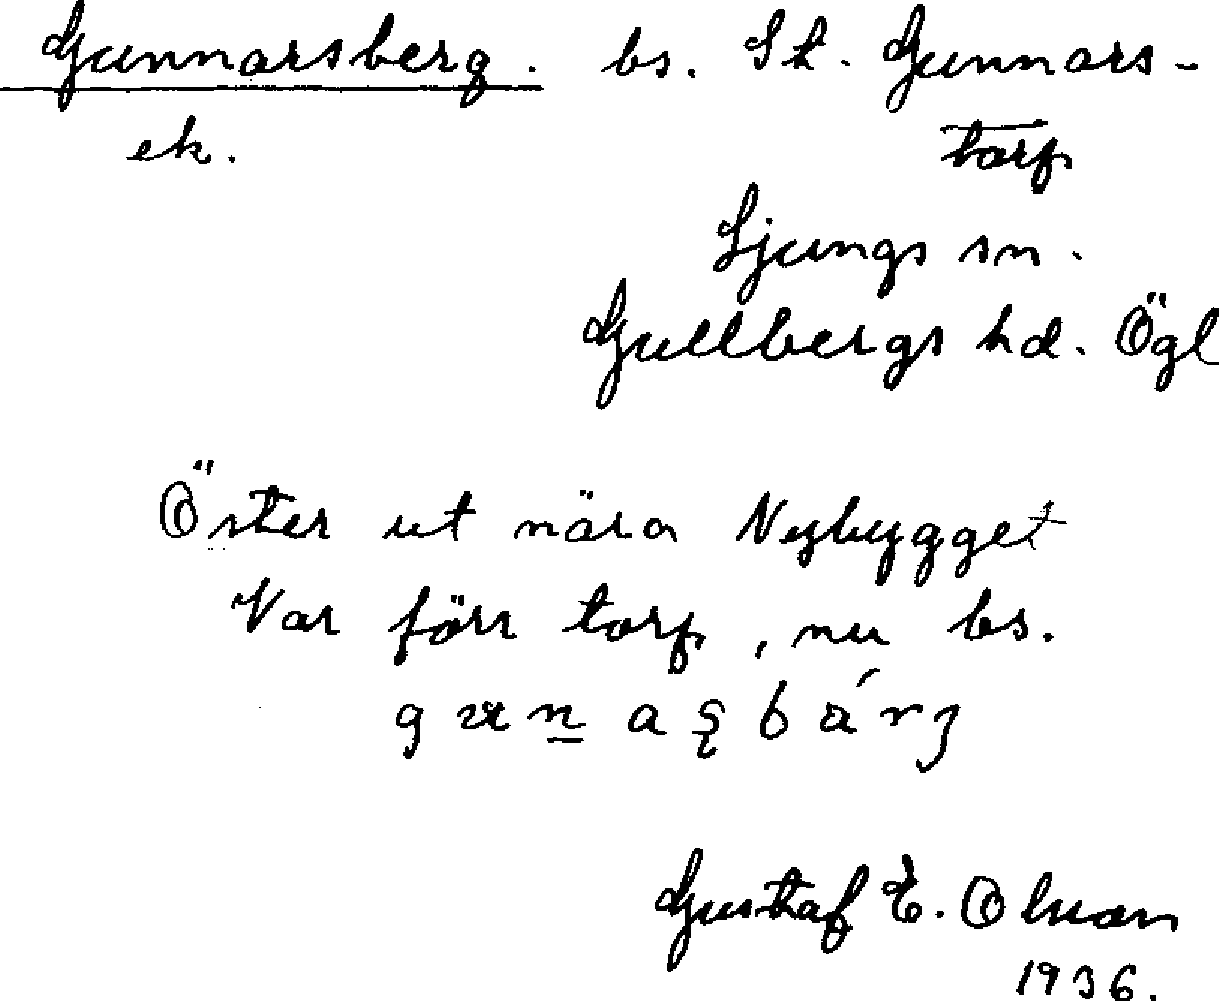 Gunnarsberg. bs. St. Gunnars-
ek. torp
Ljungs sn.
Gullbergs hd. Ögl
Öster ut nära Nybygget
Var förr torp, nu bs.
Gustaf E. Olsson
1936.